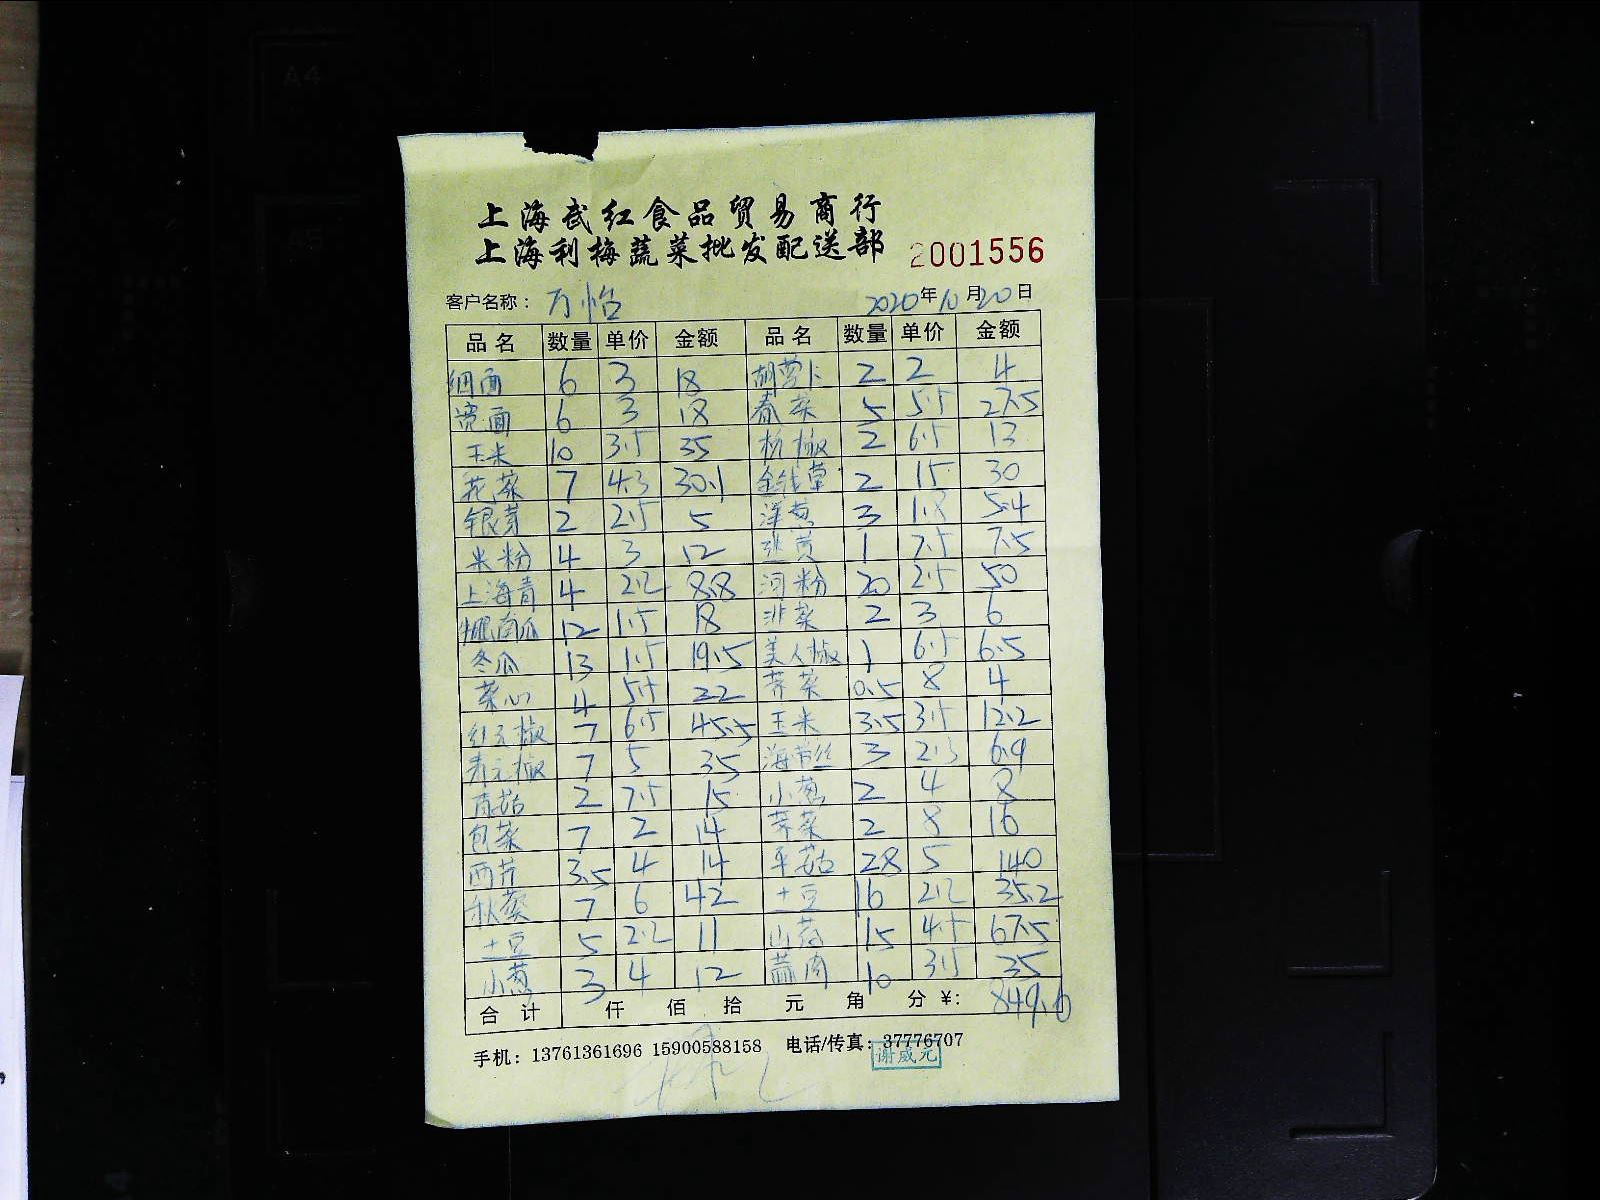 A4
A5
上海武红食品贸易商行
上海利梅蔬菜批发配送部 2001556
客户名称： 万怡 2020年10月20日
品名 数量 单价 金额 品名 数量 单价 金额
细面 6 3 18 胡萝卜 2 2 4
宽面 6 3 18 春菜 5 5.5 27.5
玉米 10 3.5 35 杭椒 2 6.5 13
花菜 7 4.3 30.1 金钱草 2 15 30
银芽 2 2.5 5 洋葱 3 1.8 5.4
米粉 4 3 12 1 7.5 7.5
上海青 4 2.2 8.8 河粉 20 2.5 50
南瓜 12 1.5 18 韭菜 2 3 6
冬瓜 13 1.5 19.5 美人椒 1 6.5 6.5
菜心 4 5.5 22 荠菜 0.5 8 4
红元椒 7 6.5 45.5 玉米 3.5 3.5 12.2
青元椒 7 5 35 海带丝 3 2.3 6.9
2 7.5 15 小葱 2 4 8
包菜 7 2 14 荠菜 2 8 16
西芹 3.5 4 14 平菇 28 5 140
秋葵 7 6 42 土豆 16 2.2 35.2
土豆 5 2.2 11 山药 15 4.5 67.5
小葱 3 4 12 10 3.5 35
合计 仟 佰 拾 元 角 分 ¥: 849.6
手机：13761361696 15900588158 电话/传真：37776707
谢威元